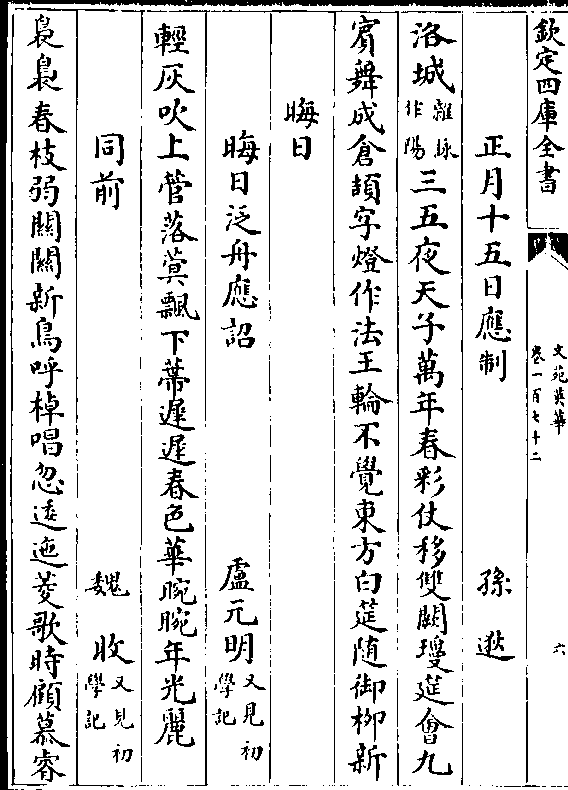 欽定四庫全書
文苑英華
卷一百七十二
六
正月十五日應制 孫逖
洛城雜詠作陽三五夜天子萬年春彩仗移雙闕瓊筵會九
賔舞成倉頡字燈作法王輪不覺東方白筵随御栁新
晦日
晦日泛舟應詔 盧元明又見初學記
輕灰吹上管落蓂飄下蔕遲遲春色華晼晼年光麗
同前 魏收又見初學記
裊裊春枝弱關關新鳥呼棹唱忽逶迤菱歌時顧慕睿